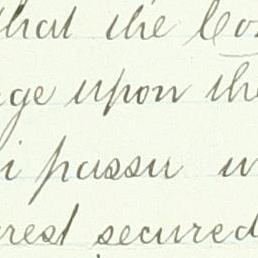 that the Co
ge upon the
i passu w
rest secured